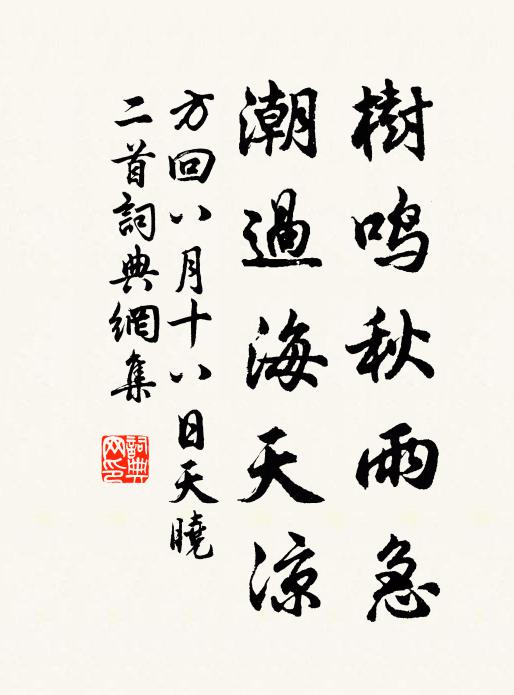 樹鳴秋雨急
潮過海天涼
方回八月十八日天曉
二首詞典網集
詞典网印